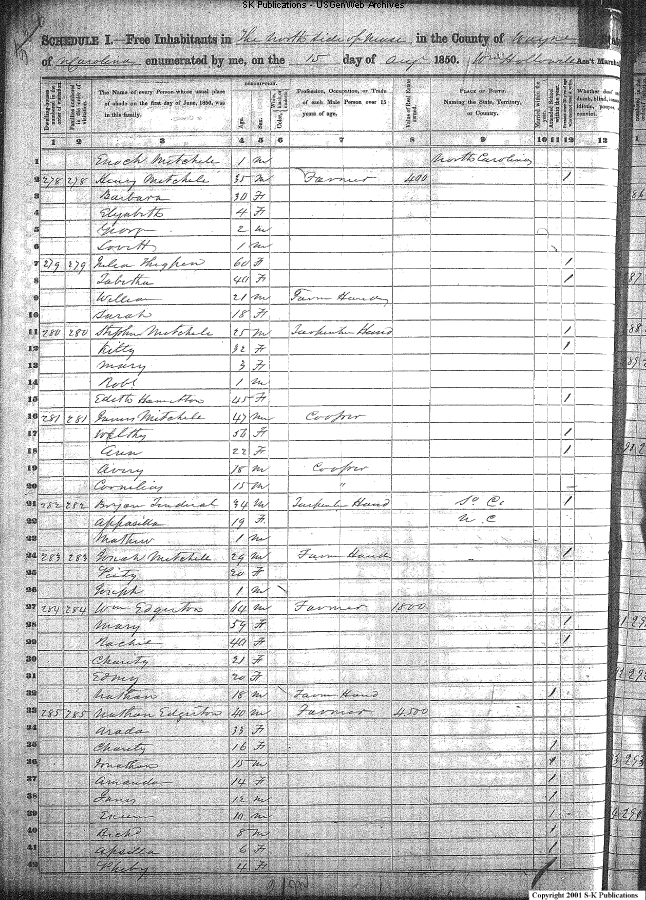 SK Publications - USGenWeb Archives
SCHEDULE I.—Free Inhabitants in The North Side of Neuse in the County of Wayne State
of N Carolina enumerated by me, on the 15 day of Augt 1850. Wm Ass't Marshal
Dwelling-houses numbered in the order of visitation.
Families numbered in the order of visitation.
The Name of every Person whose usual place of abode on the first day of June, 1850, was in this family.
DESCRIPTION.
Age.
Sex.
Color,
Profession, Occupation, or Trade of each Male Person over 15 years of age.
Value of Real Estate owned
PLACE OF BIRTH. Naming the State, Territory, or Country.
Married within the year.
Attended School within the year.
Whether deaf and dumb, blind, insane, idiotic, pauper, or convict.
1 2 3 4 5 6 7 8 9 10 11 12 13
1 Enoch Mitchell 1 M North Carolina
2 278 278 Henry Mitchell 35 M Farmer 400 1
3 Barbara 30 F
4 Elyabeth 4 F
5 Georg 2 M
6 Lovitt 1 M
7 279 279 Julia Thigpen 60 F 1
8 Tabitha 40 F 1
9 William 21 M Farm Hand
10 Sarah 18 F
11 280 280 Stephen Mitchell 25 M Turpentine Hand 1
12 Kitty 32 F 1
13 Mary 3 F
14 Robt 1 M
15 Edith Hamilton 45 F 1
16 281 281 James Mitchell 47 M Cooper
17 Welthy 56 F 1
18 Ann 22 F 1
19 Avery 18 M Cooper
20 Cornelius 15 M "
21 282 282 Bryan 34 M Turpentine Hand So Ca 1
22 Appasilla 19 F N C
23 Mathew 1 M
24 283 283 Jonah Mitchell 29 M Farm Hand 1
25 20 F
26 Joseph 1 M
27 284 284 Wm Edgerton 64 M Farmer 1800
28 Mary 59 F 1
29 Rachie 40 F 1
30 Charity 21 F
31 Edny 20 F
32 Nathan 18 M Farm Hand 1
33 285 285 Nathan Edgerton 40 M Farmer 4500
34 Arada 33 F
35 Charity 16 F 1
36 Jonathan 15 M 1
37 Amanda 14 F 1
38 James 12 M 1
39 10 M 1
40 Richd 8 M 1
41 Apsilla 6 F 1
42 Pheby 4 F
Copyright 2001 S-K Publications